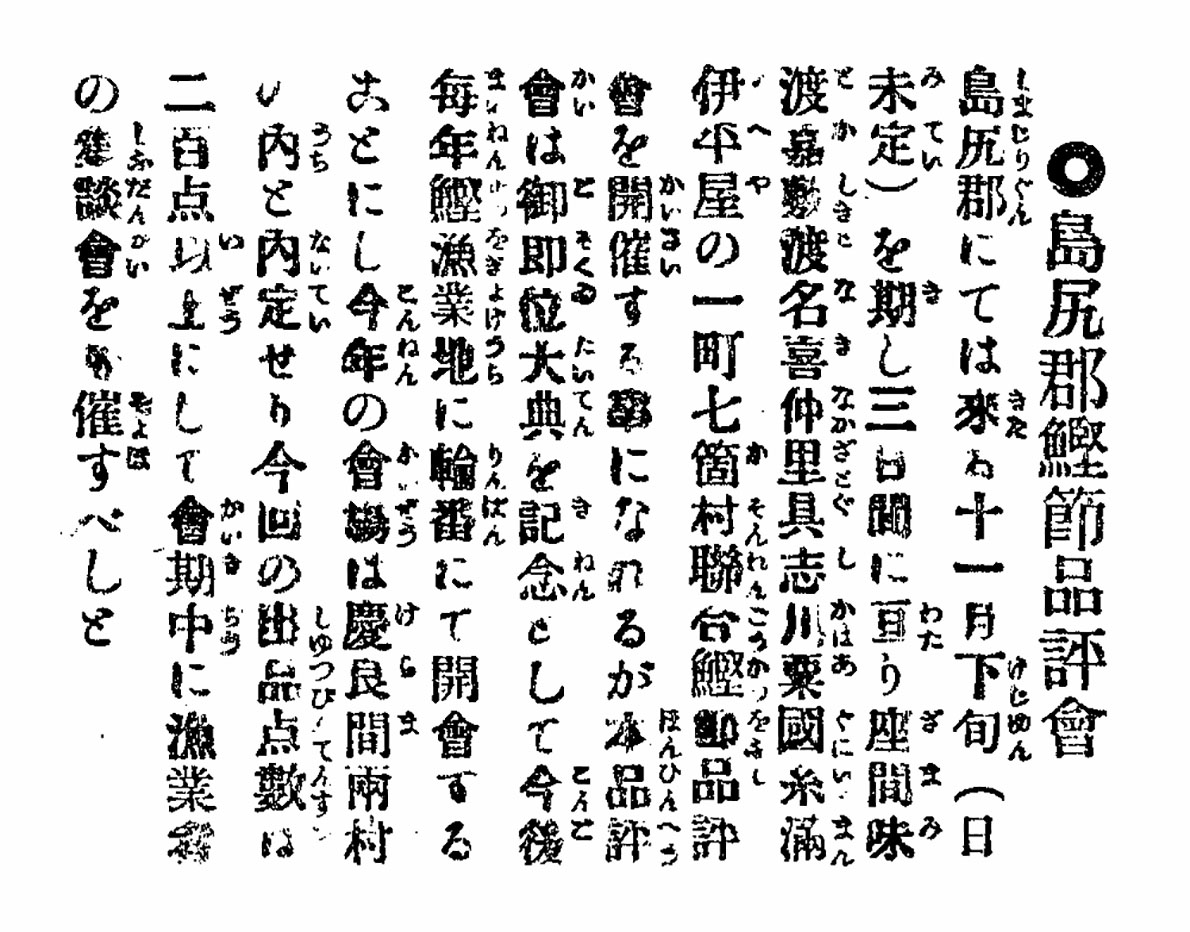 ◎島尻郡鰹節品評會
島尻郡にては來る十一月下旬（日
未定）を期し三日間に亘り座間味
渡嘉敷渡名喜仲里具志川粟國糸滿
伊平屋の一町七箇村聯合鰹節品評
會を開催する事になれるが本品評
會は御即位大典を記念として今後
毎年鰹漁業地に輪番にて開會する
ことにし今年の會場は慶良間兩村
の内と内定せり今回の出品点數は
二百点以上にして會期中に漁業者
の集談會をも催すべしと